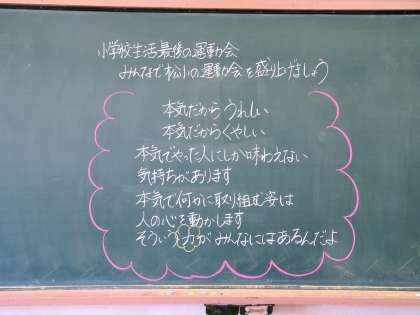 小学校生活最後の運動会
みんなで松小の運動会を盛り上げましょう
本気だからうれしい
本気だからくやしい
本気でやった人にしか味わえない
気持ちがあります
本気で何かに取り組む姿は
人の心を動かします
そういう力がみんなにはあるんだよ